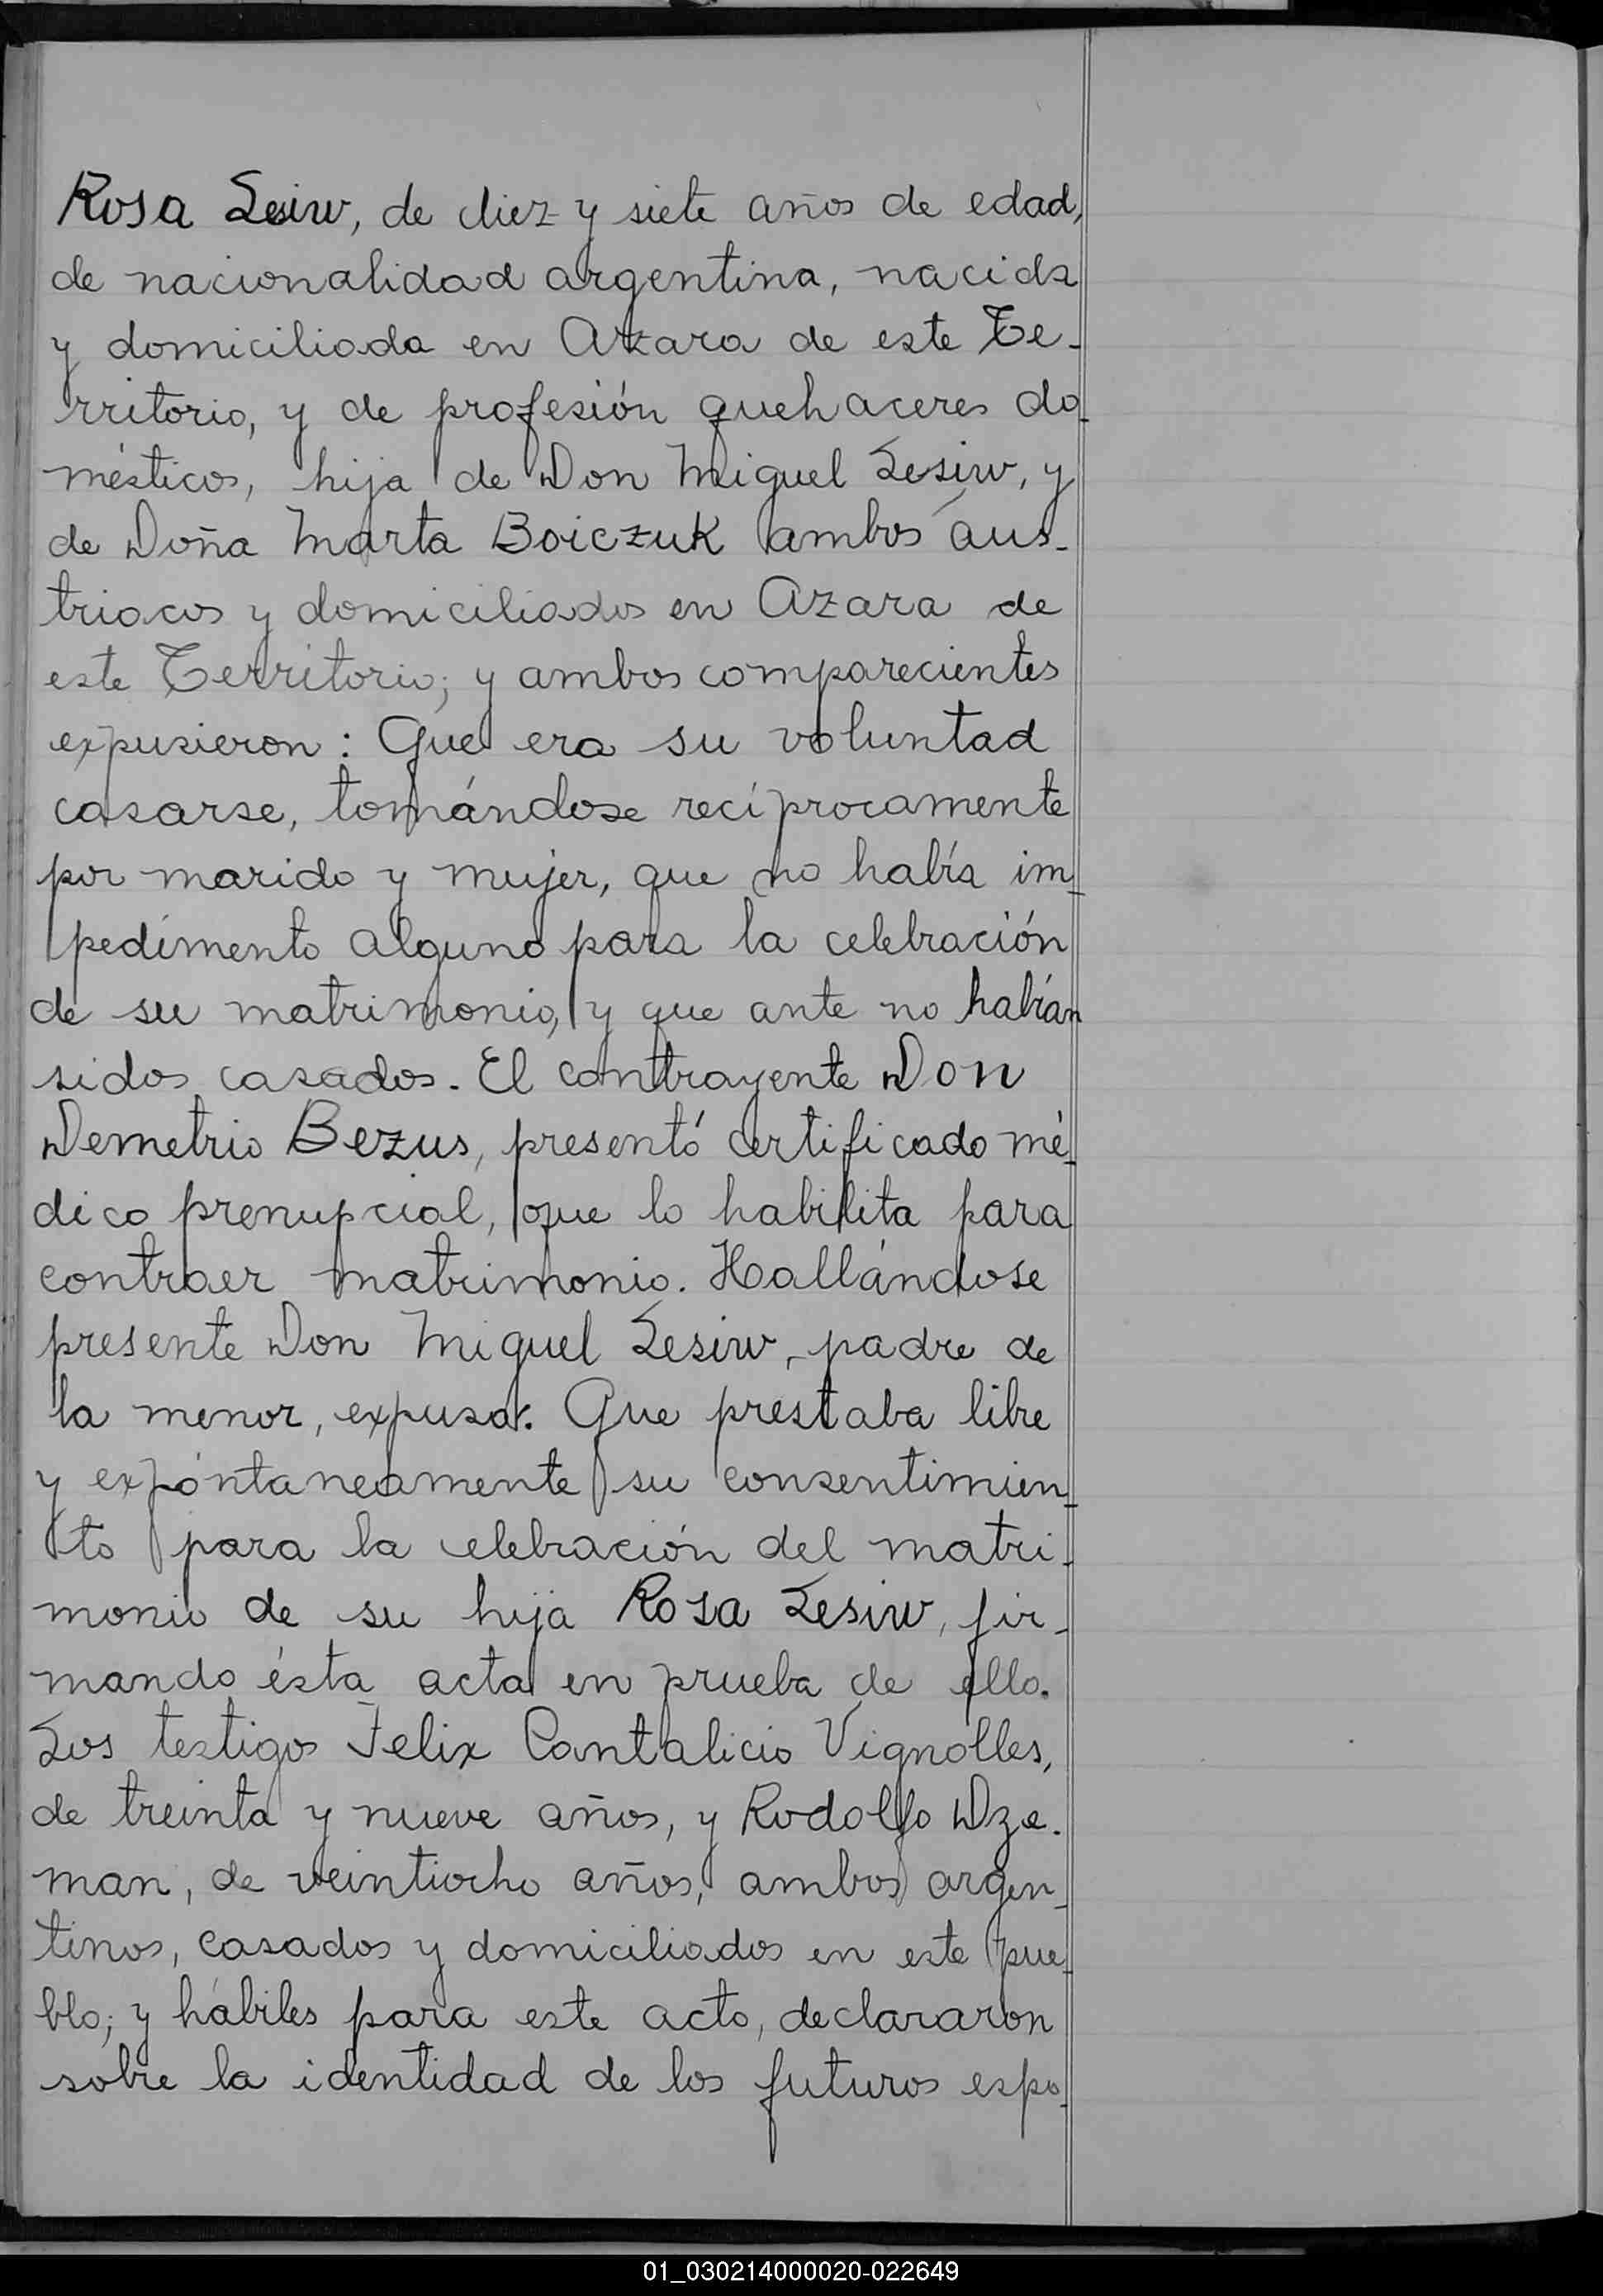 Rosa Lesiw, de diez y siete años de edad,
de nacionalidad argentina, nacida
y domiciliada en Azara de este Te-
rritorio, y de profesión quehaceres do-
mésticos, hija de Don Miguel Lesiw, y
de Doña Marta Boiczuk ambos aus-
triacos y domiciliados en Azara de
este Territorio; y ambos comparecientes
expusieron: Que era su voluntad
casarse, tomándose recíprocamente
por marido y mujer, que no había im-
pedimento alguno para la celebración
de su matrimonio, y que ante no habían
sidos casados. El contrayente Don
Demetrio Bezus, presentó certificado mé-
dico prenupcial, que lo habilita para
contraer matrimonio. Hallándose
presente Don Miguel Lesiw, padre de
la menor, expuso: Que prestaba libre
y expóntaneamente su consentimien-
to para la celebración del matri-
monio de su hija Rosa Lesiw, fir-
mando ésta acta en prueba de ello.
Los testigos Felix Cantalicio Vignolles,
de treinta y nueve años, y Rodolfo Dze-
man, de veintiocho años, ambos argen-
tinos, casados y domiciliados en este pue-
blo; y hábiles para este acto, declararon
sobre la identidad de los futuros espo-
01_030214000020-022649